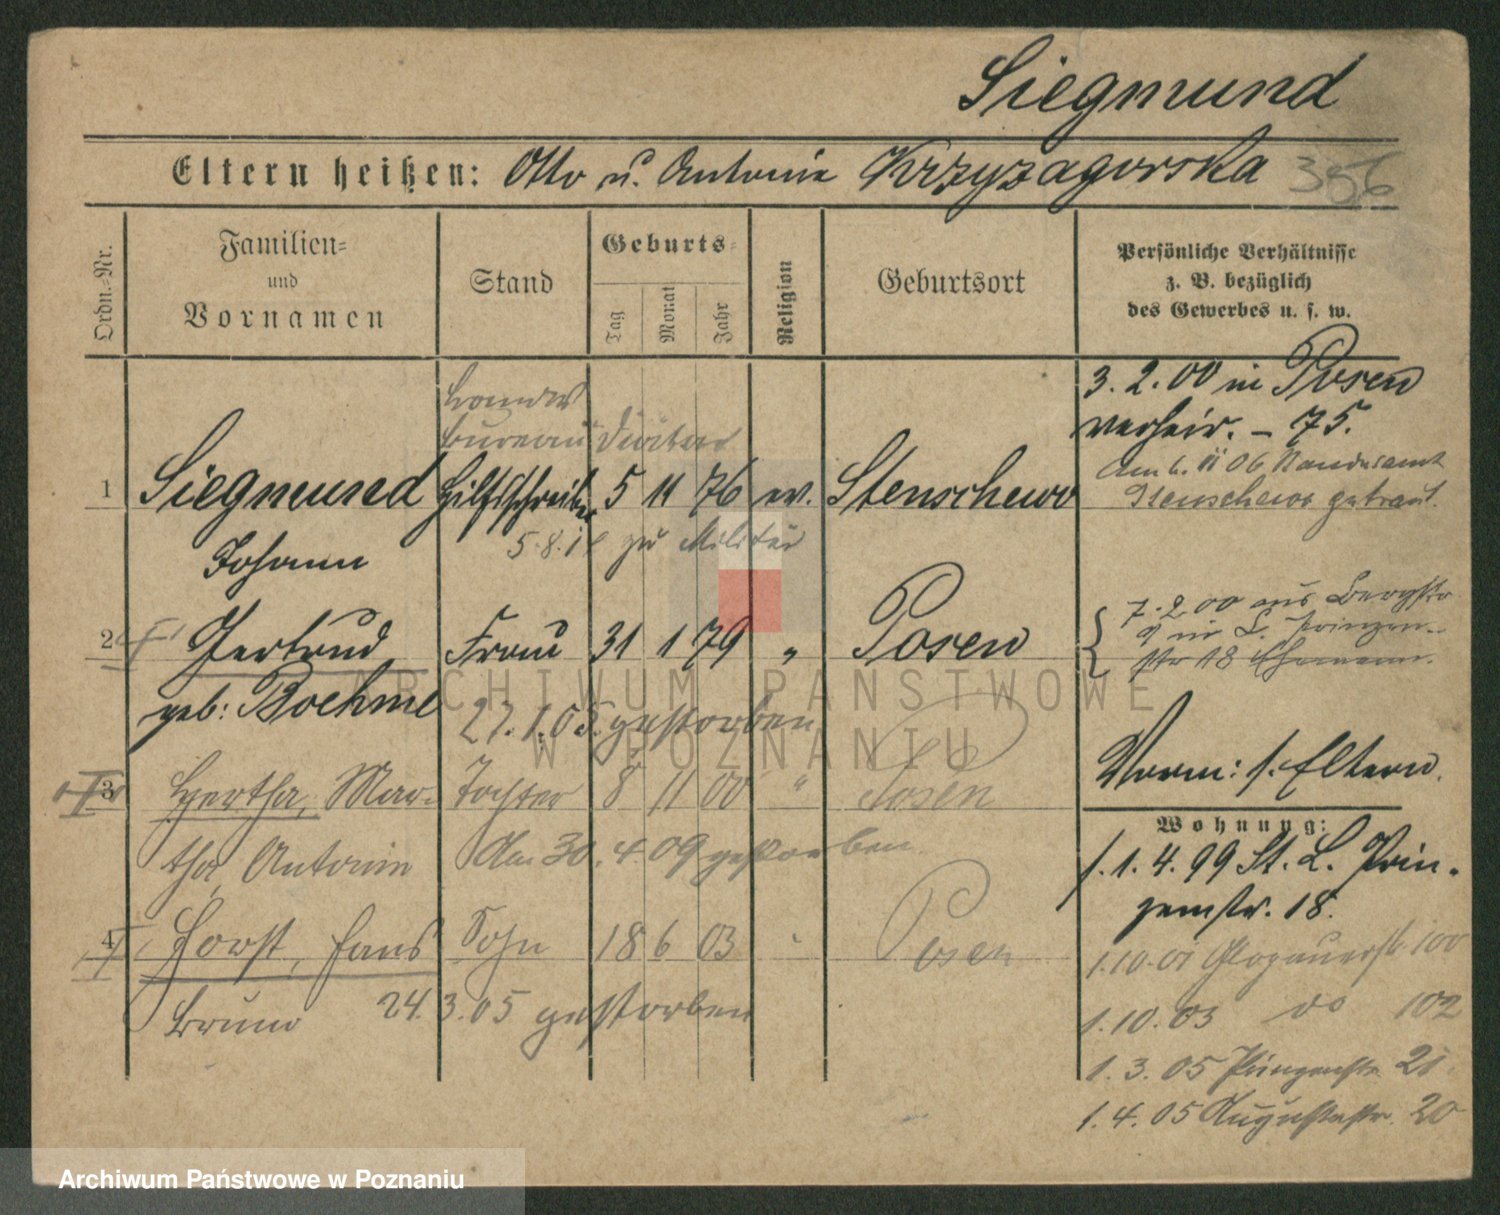 Siegmund
Eltern heißen: Otto u. Antonie Krzyzagorska 356
Ordn.=Nr.
Familien= und Vornamen
Stand
Geburts=
Tag
Monat
Jahr
Religion
Geburtsort
Persönliche Verhältnisse
z. B. bezüglich
des Gewerbes u. s. w.
Landes
bureau Diätar
1 Siegmund Hilfsschreiber 5 11 76 ev. Stenschewo
Johann
5.8.1 zu Militär
2 Gertrud Frau 31 1 79 " Posen
geb: Boehme
27.1.05. gestorben
3 Hertha, Mar- Tochter 8 11 00 " Posen
tha Antonie Am 30.4.09 gestorben
4 Horst, Hans Sohn 18 6 03 Posen
Bruno 24.3.05 gestorben
3.2.00 in Posen
verheir. - 75.
Am 6. 11 06 Standesamt
Stenschewo getraut.
7.2 00 aus Bergstr
9 in L. Prinzen-
str 18 Ehemann.
Vorm: s. Eltern.
Wohnung:
1.4.99 St. L. Prin-
zenstr. 18.
1.10.01 Glogauerstr 100
1.10.03 do 102
1.3.05 Prinzenstr. 21
1.4.05 Augustastr. 20
ARCHIWUM PAŃSTWOWE
W POZNANIU
Archiwum Państwowe w Poznaniu